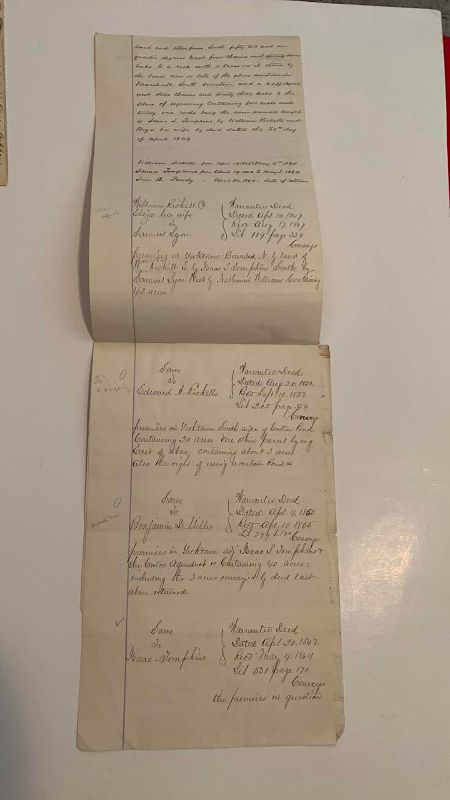 land and stone fence South fifty two and
quarter degrees East four chains and twenty seven
links to a rock with a cross on it thence by
the land now or late of the above mentioned
Marshall South seventeen and a half degrees
west three chains and twenty three links to the
place of beginning Containing five acres and
twenty one rods being the same premises conveyed
to Isaac L Tompkins by William Ricketts and
Eliza his wife by deed dated the 20th day
of April 1842
William Ricketts from April
Isaac Tompkins from April 19. to May 5. 1864
April 30. 1864 - date of return
William Rickett &
Eliza his wife
to
Samuel Lyon
Warrantee Deed
Dated Apl 15
Recd Aug 17.
Lib 119 page 334
Conveys
Premises in Yorktown Bounded N. by land of
Wm Rickett E. by Isaac L Tompkins South by
Samuel Lyon West by Nathaniel Williams Containing
43 acres
Same
to
Edward A. Ricketts
Warrantee Deed
Dated Aug
Recd Sept 10.
Lib 203 page
Conveys
premises in Yorktown South side of Croton Pond
Containing 20 acres One other parcel lying
East of above containing about 3 acres
Also the right of using a certain Road &
Same
to
Benjamin D. Miller
Warrantee Deed
Dated Apl. 4. 1855
Recd Apl. 10. 1855
Conveys
premises in Yorktown adj Isaac L Tompkins &
the Croton Aqueduct Containing 40 acres
including the 3 acres conveyed by deed last
above returned
Same
to
Isaac Tompkins
Warrantee Deed
Dated Apl 20. 1842
Recd May 4. 1864
Lib 531 page 170
Conveys
the premises in question